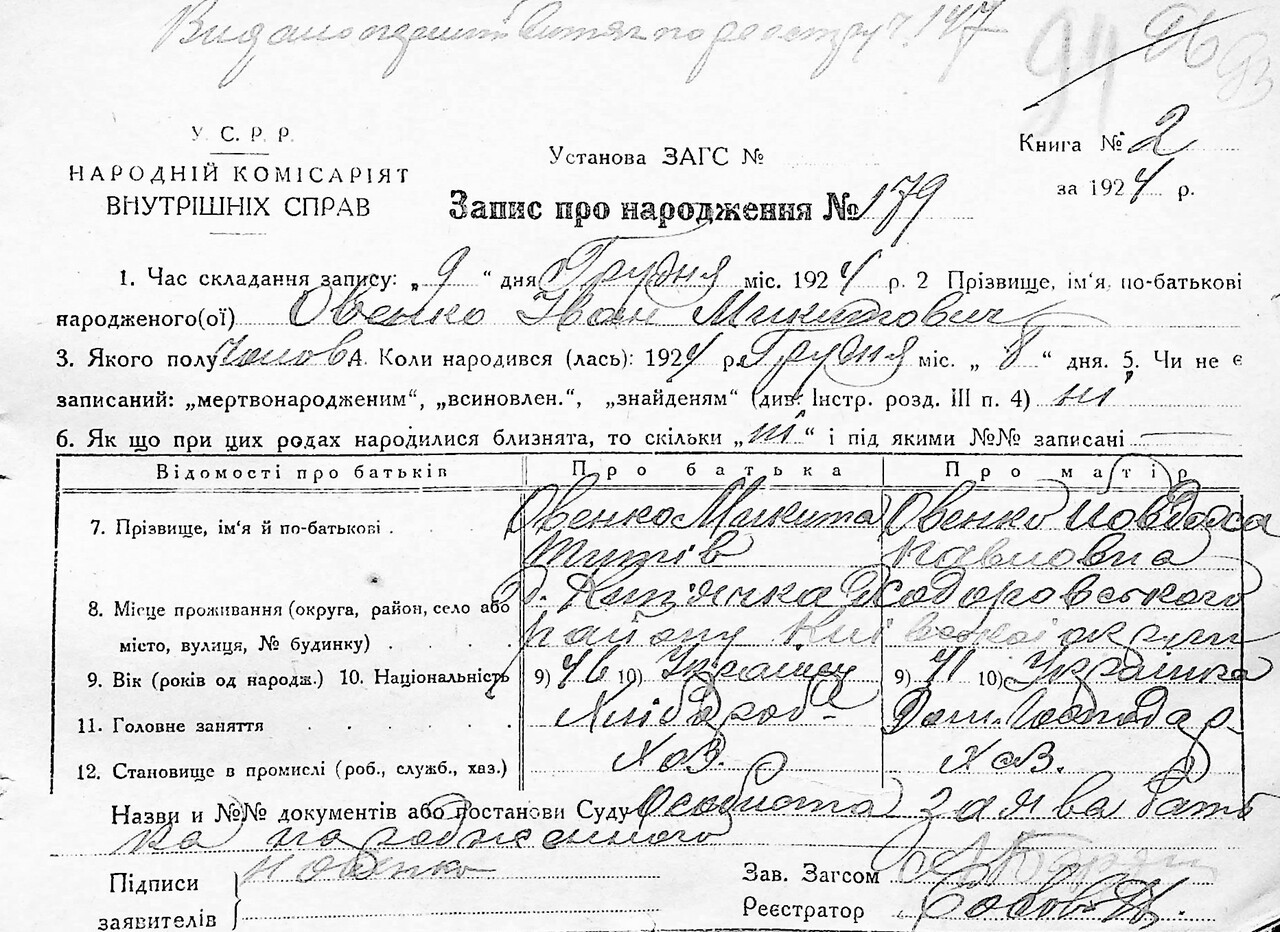 Видано перший витяг по реєстру ч. 147
94 96 93
У. С. Р. Р.
НАРОДНІЙ КОМІСАРІЯТ
ВНУТРІШНІХ СПРАВ
Установа ЗАГС №
Книга № 2
за 1924 р.
Запис про народження № 179
1. Час складання запису: „ 9 “ дня Грудня міс. 1924 р. 2 Прізвище, ім'я, по-батькові
народженого(ої) Овенко Іван Микитович
3. Якого полу Чолов. 4. Коли народився (лась): 1924 р. Грудня міс. „ 8 “ дня. 5. Чи не є
записаний: „мертвонародженим“, „всиновлен.“, „знайденям“ (див. Інстр. розд. III п. 4) ні
6. Як що при цих родах народилися близнята, то скільки „ ні “ і під якими №№ записані
Відомості про батьків Про батька Про матір
7. Прізвище, ім'я й по-батькові . Овенко Микита Овенко
Титів Павловна
8. Місце проживання (округа, район, село або Ходоровського
місто, вулиця, № будинку) . району Київської округи
9. Вік (років од народж.) 10. Національність 9) 46 10) Українец 9) 41 10) Українка
11. Головне заняття Хлібороб Дом. Господар
12. Становище в промислі (роб., служб., хаз.) Хаз. Хаз.
Назви и №№ документів або Постанови Суду Особиста заява бать
ка народженного
Підписи
заявителів
Зав. Загсом
Реєстратор